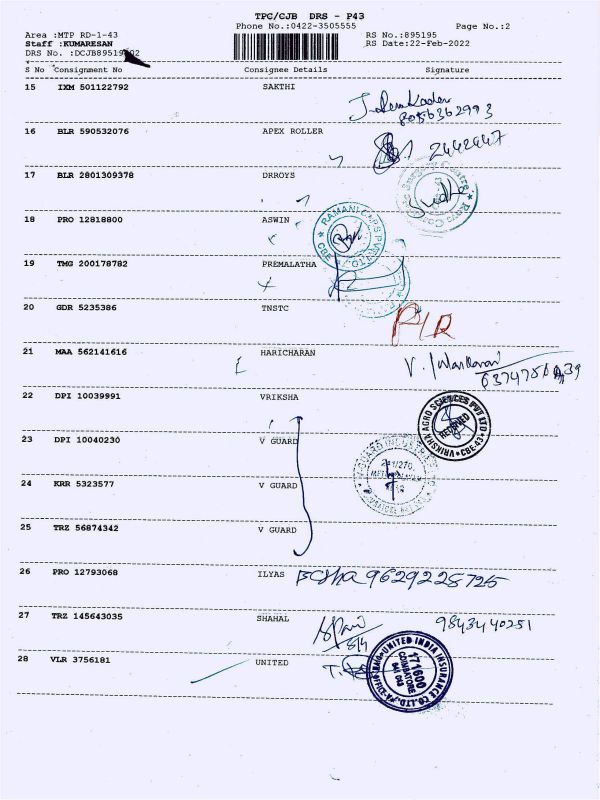 TPC/CJB DRS - P43
Phone No.:0422-3505555
Page No.:2
Area :MTP RD-1-43
RS No.:895195
Staff :KUMARESAN
RS Date:22-Feb-2022
DRS No. :DCJB89519
S No Consignment No Consignee Details Signature
15 IXM 501122792 SAKTHI
8056362993
16 BLR 590532076 APEX ROLLER
2442447
17 BLR 2801309378 DRROYS
Sudha
18 PRO 12818800 ASWIN
RAMANI CARS PVT LTD CBE
19 TMG 200178782 PREMALATHA
20 GDR 5235386 TNSTC
P/R
21 MAA 562141616 HARICHARAN
22 DPI 10039991 VRIKSHA
VRIKSHA AGRO SCIENCES PVT LTD CBE-43
RECEIVED
23 DPI 10040230 V GUARD
24 KRR 5323577 V GUARD
25 TRZ 56874342 V GUARD
26 PRO 12793068 ILYAS
9629228725
27 TRZ 145643035 SHAHAL
9843440251
28 VLR 3756181 UNITED
UNITED INDIA INSURANCE CO.LTD.
171600
COIMBATORE
641 043